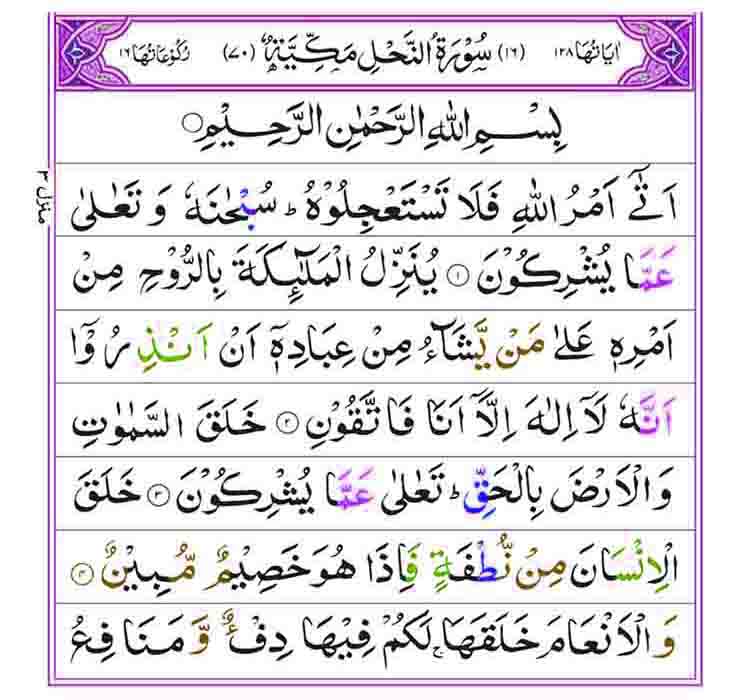 اٰيَاتُهَا ١٢٨ (١٦) سُوْرَةُ النَّحْلِ مَكِّيَّةٌ (٧٠) رُكُوْعَاتُهَا ١٦
بِسْمِ اللهِ الرَّحْمٰنِ الرَّحِيْمِ
اَتٰۤى اَمْرُ اللهِ فَلَا تَسْتَعْجِلُوْهُ ؕ سُبْحٰنَهٗ وَ تَعٰلٰى
منزل ٣
عَمَّا يُشْرِكُوْنَ ۝١ يُنَزِّلُ الْمَلٰٓئِكَةَ بِالرُّوْحِ مِنْ
اَمْرِهٖ عَلٰى مَنْ يَّشَآءُ مِنْ عِبَادِهٖۤ اَنْ اَنْذِرُوْۤا
اَنَّهٗ لَاۤ اِلٰهَ اِلَّاۤ اَنَا فَاتَّقُوْنِ ۝٢ خَلَقَ السَّمٰوٰتِ
وَ الْاَرْضَ بِالْحَقِّ ؕ تَعٰلٰى عَمَّا يُشْرِكُوْنَ ۝٣ خَلَقَ
الْاِنْسَانَ مِنْ نُّطْفَةٍ فَاِذَا هُوَ خَصِيْمٌ مُّبِيْنٌ ۝٤
وَ الْاَنْعَامَ خَلَقَهَا ۚ لَكُمْ فِيْهَا دِفْءٌ وَّ مَنَافِعُ